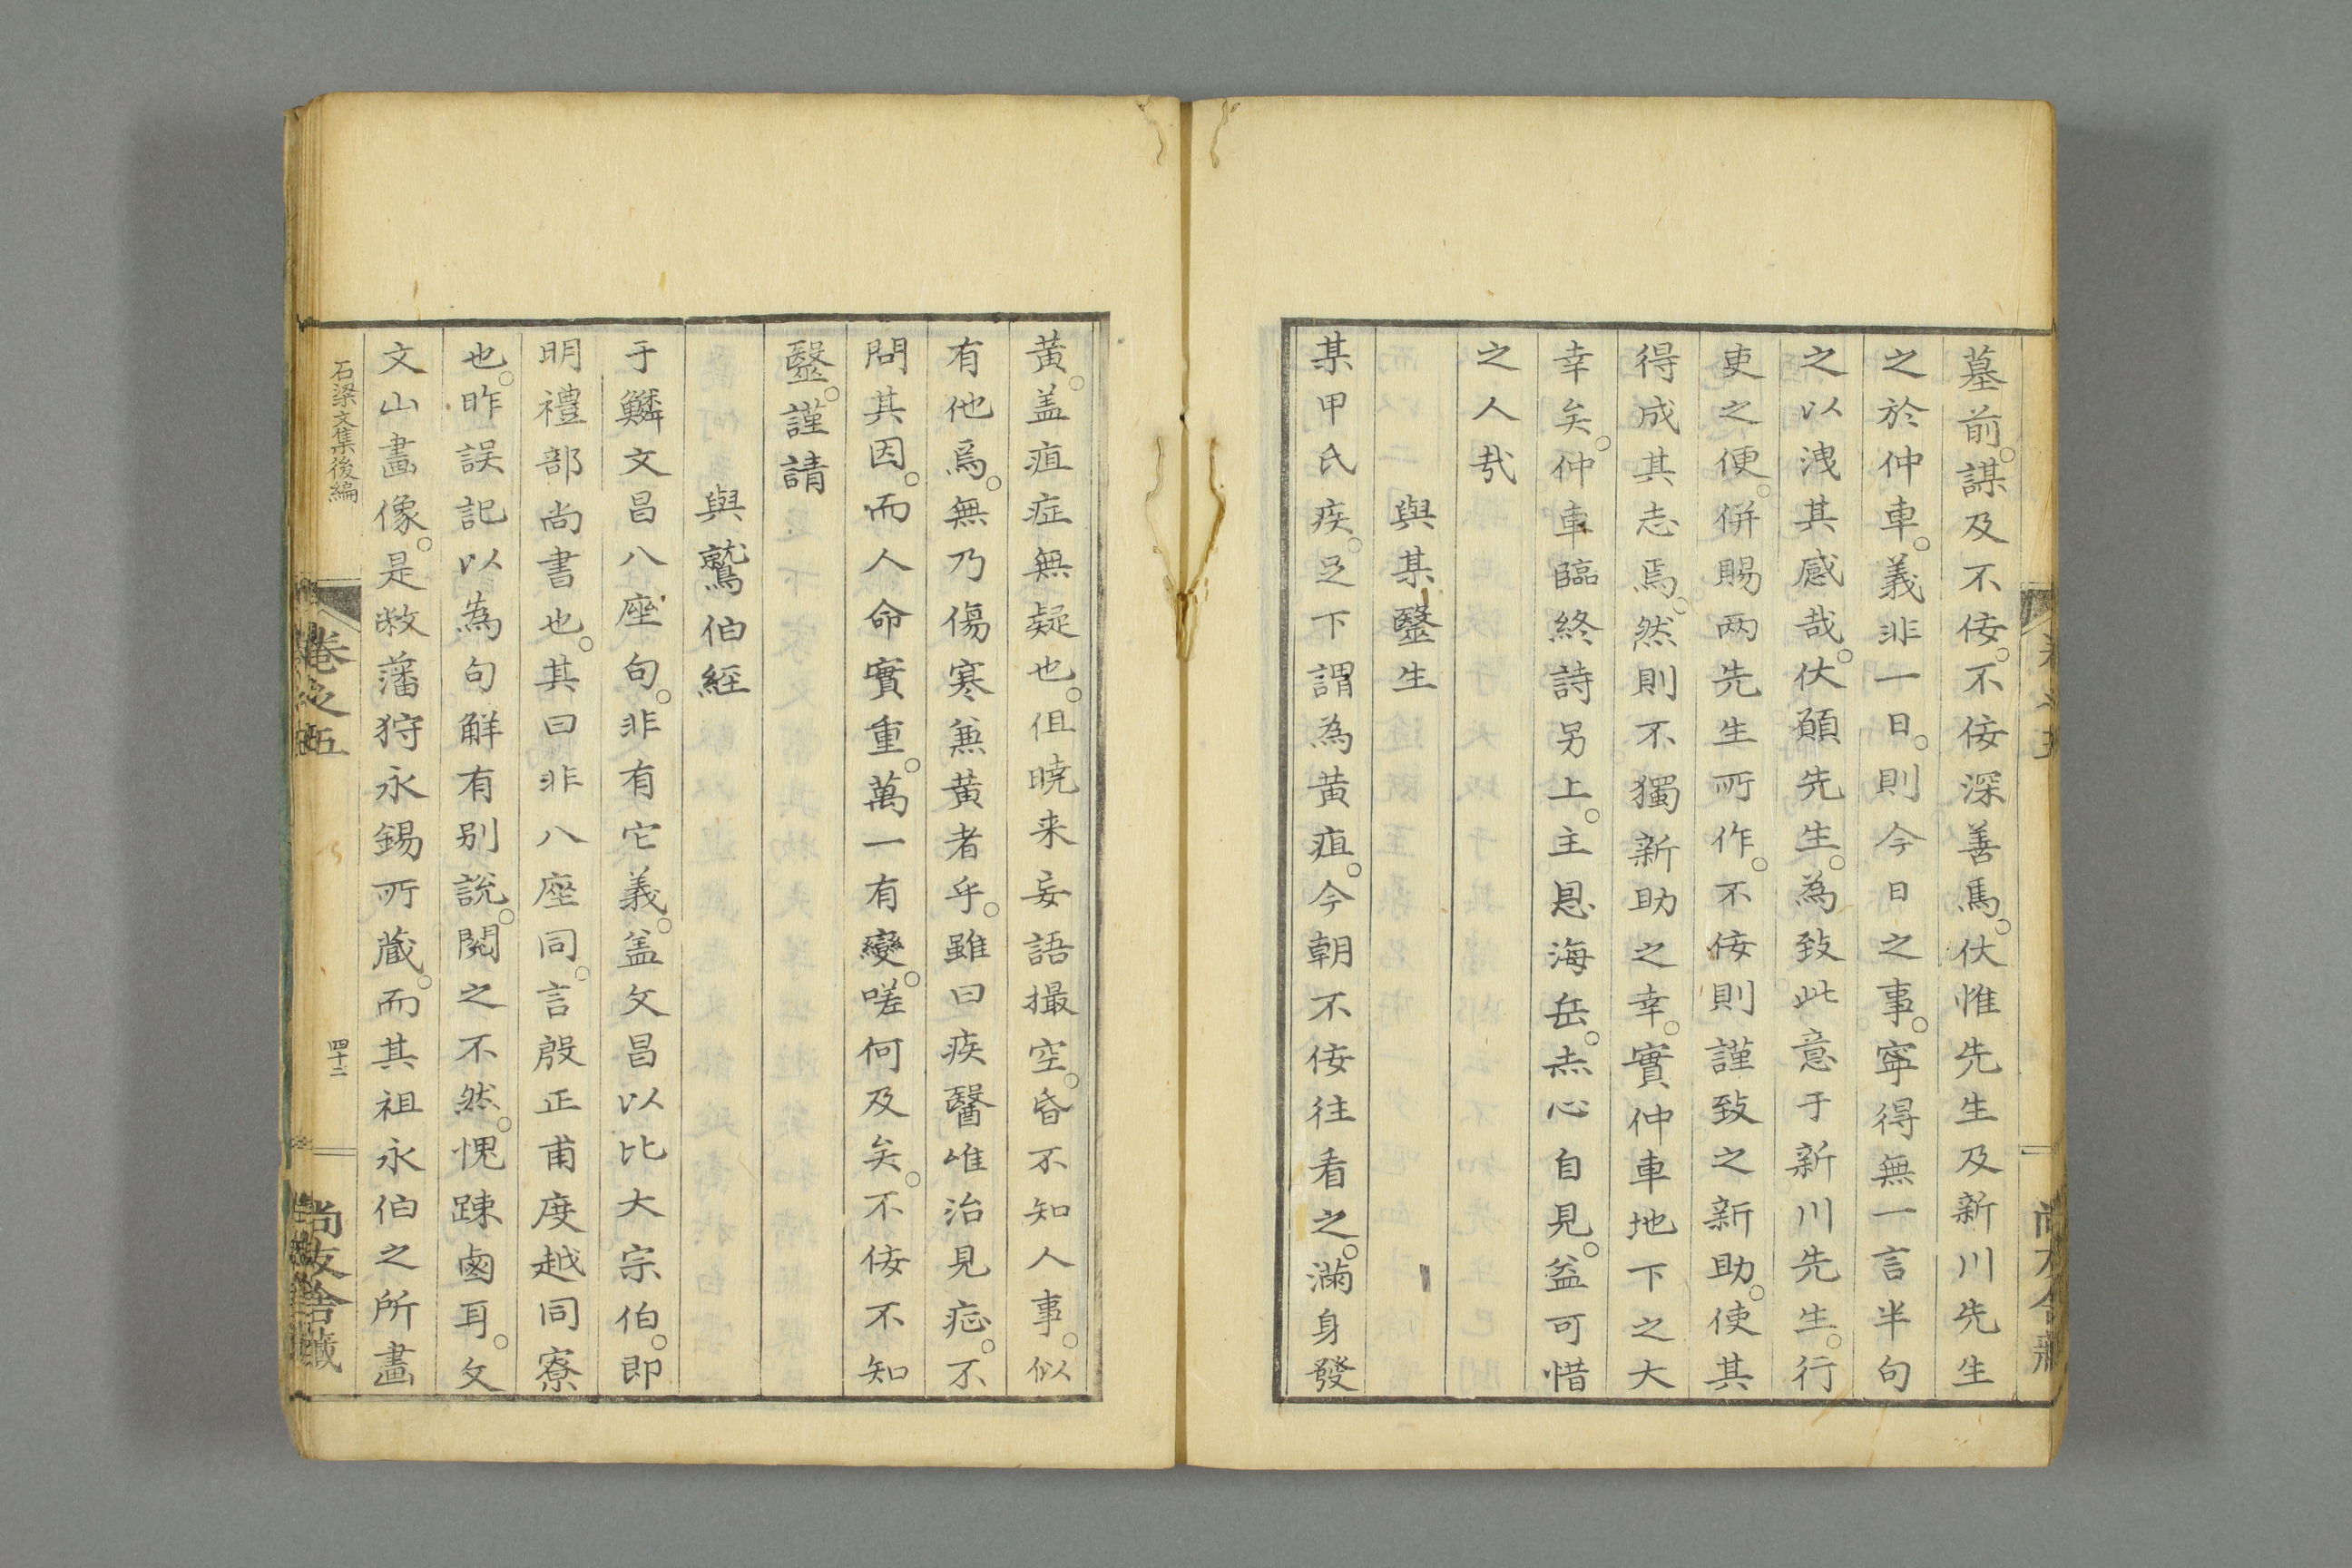 墓前。謀及不佞。不佞深善焉。伏惟先生及新川先生
之於仲車。義非一日。則今日之事。寧得無一言半句
之以洩其感哉。伏願先生。為致此意于新川先生。行
吏之便。併賜兩先生所作。不佞則謹致之新助。使其
得成其志焉。然則不獨新助之幸。實仲車地下之大
幸矣。仲車臨終詩另上。主恩海岳。赤心自見。益可惜
之人哉
與某醫生
某甲氏疾。足下謂為黃疸。今朝不佞往看之。滿身發
黃。盖疸症無疑也。但曉来妄語撮空。昏不知人事。似
有他焉。無乃傷寒兼黃者乎。雖曰疾醫唯治見症。不
問其因。而人命實重。萬一有變。嗟何及矣。不佞不知
毉。謹請
與鷲伯經
于鱗文昌八座句。非有它義。盖文昌以比大宗伯。即
明禮部尚書也。其曰非八座同。言殷正甫度越同寮
也。昨誤記以為句解有別說。閱之不然。愧踈鹵耳。文
文山畫像。是敝藩狩永錫所藏。而其祖永伯之所畫
石梁文集後編
卷之五
四十二
尚友舎藏